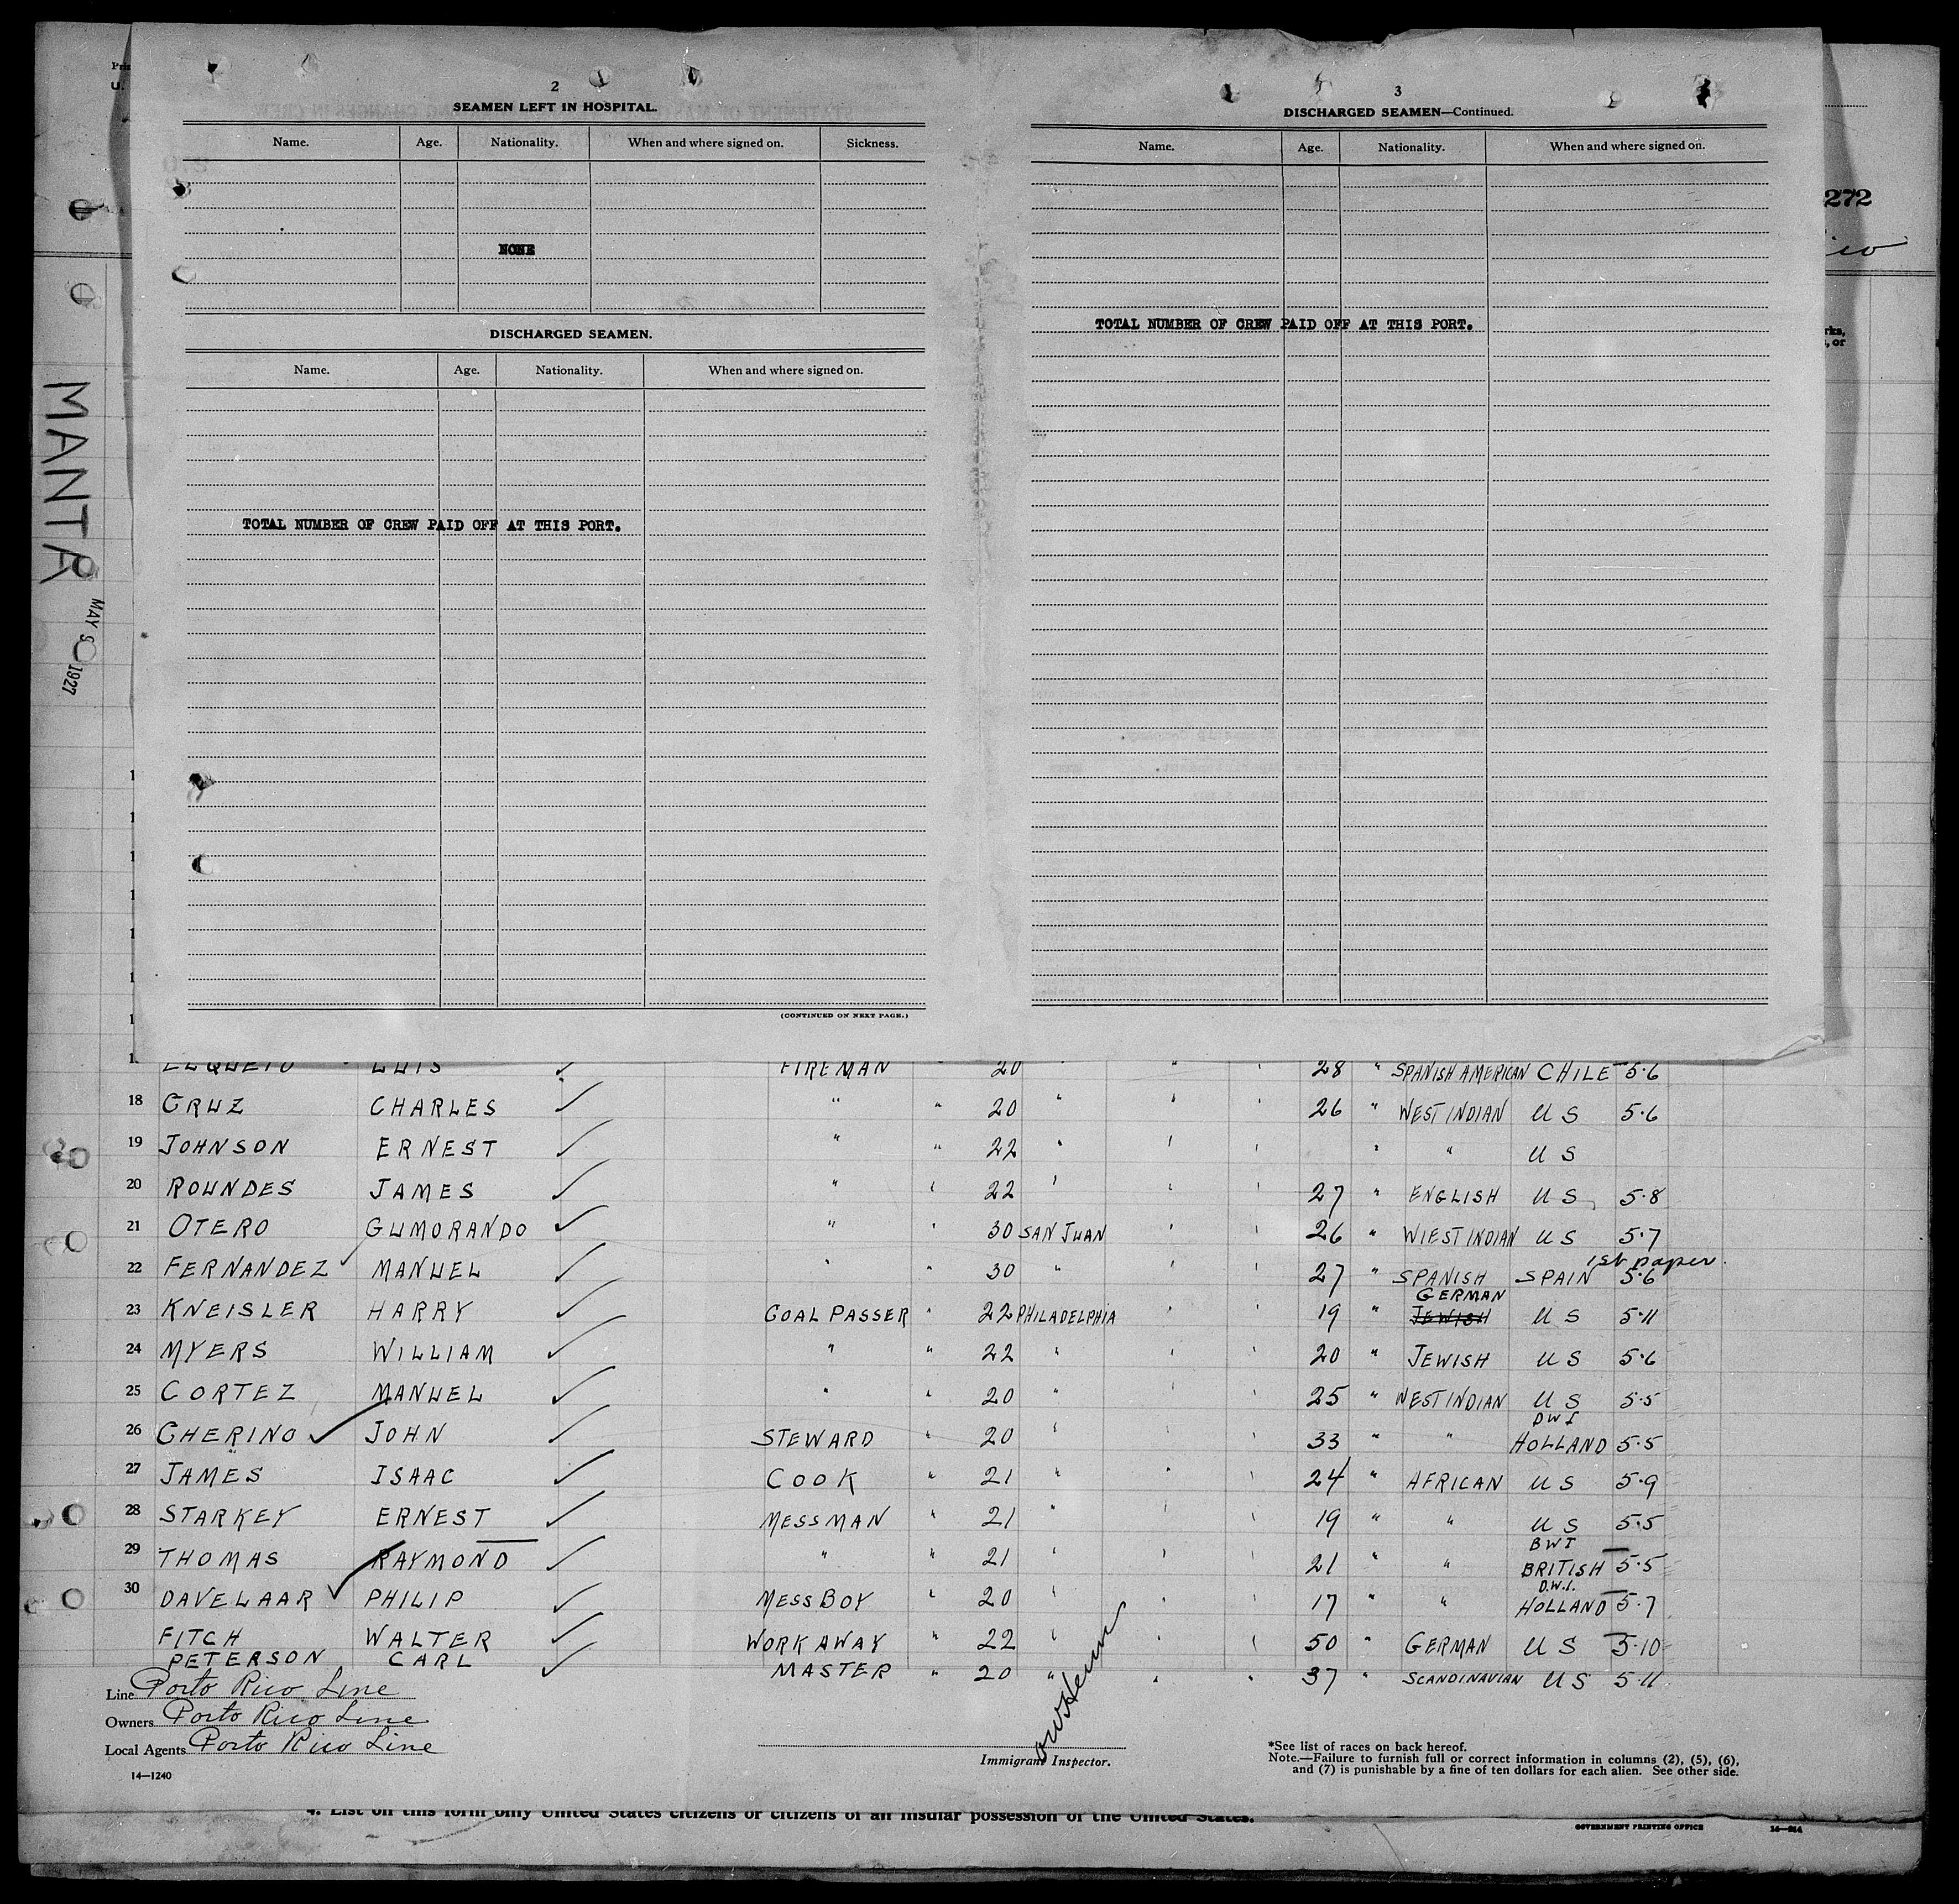 Pri
U.
2
SEAMEN LEFT IN HOSPITAL.
Name. Age. Nationality. When and where signed on. Sickness.
NONE
DISCHARGED SEAMEN.
Name. Age. Nationality. When and where signed on.
TOTAL NUMBER OF CREW PAID OFF AT THIS PORT.
(CONTINUED ON NEXT PAGE.)
3
DISCHARGED SEAMEN—Continued.
Name. Age. Nationality. When and where signed on.
TOTAL NUMBER OF CREW PAID OFF AT THIS PORT.
272
ico
rks,
, or
MANTA
MAY 1927
1
1
1
1
1
1
1
1 LUIS FIREMAN " 20 " " " 28 " SPANISH AMERICAN CHILE 5·6
18 CRUZ CHARLES " " 20 " " " 26 " WEST INDIAN U S 5·6
19 JOHNSON ERNEST " " 22 " " " " " U S
20 ROUNDES JAMES " " 22 " " " 27 " ENGLISH U S 5·8
21 OTERO GUMORANDO " " 30 SAN JUAN " " 26 " WIEST INDIAN U S 5·7
22 FERNANDEZ MANUEL " " 30 " " " 27 " SPANISH SPAIN 1st paper 5·6
23 KNEISLER HARRY COAL PASSER " 22 PHILADELPHIA " " 19 " GERMAN JEWISH U S 5·11
24 MYERS WILLIAM " " 22 " " " 20 " JEWISH U S 5·6
25 CORTEZ MANUEL " " 20 " " " 25 " WEST INDIAN U S 5·5
26 CHERINO JOHN STEWARD " 20 " " " 33 " " DWI HOLLAND 5·5
27 JAMES ISAAC COOK " 21 " " " 24 " AFRICAN U S 5·9
28 STARKEY ERNEST MESSMAN " 21 " " " 19 " " U S 5·5
29 THOMAS RAYMOND " " 21 " " " 21 " " BWI BRITISH 5·5
30 DAVELAAR PHILIP MESS BOY " 20 " " " 17 " " D.W.I. HOLLAND 5·7
FITCH WALTER WORK AWAY " 22 " " " 50 " GERMAN U S 5·10
PETERSON CARL MASTER " 20 " " " 37 " SCANDINAVIAN U S 5·11
Line Porto Rico Line
Owners Porto Rico Line
Local Agents Porto Rico Line
14—1240
Immigrant Inspector.
*See list of races on back hereof.
Note.—Failure to furnish full or correct information in columns (2), (5), (6),
and (7) is punishable by a fine of ten dollars for each alien. See other side.
4. List on this form only United States citizens or citizens of an insular possession of the United States.
GOVERNMENT PRINTING OFFICE